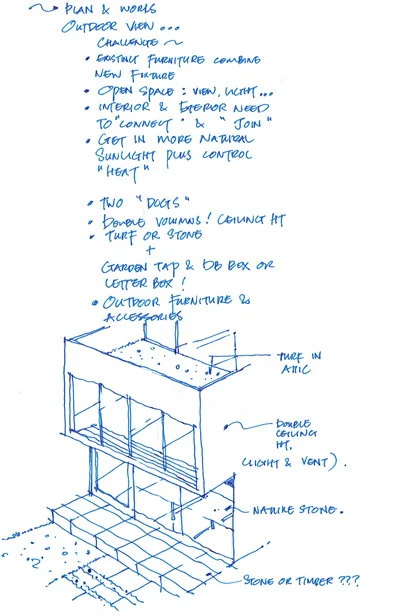 ~ PLAN & WORKS
OUTDOOR VIEW...
CHALLENGE ~
• EXISTING FURNITURE COMBINE
NEW FIXTURE
• OPEN SPACE : VIEW, LIGHT...
• INTERIOR & EXTERIOR NEED
TO "CONNECT" & "JOIN"
• GET IN MORE NATURAL
SUNLIGHT PLUS CONTROL
"HEAT"
• TWO "DOGS"
• DOUBLE VOLUMNS! CEILING HT
• TURF OR STONE
+
GARDEN TAP & DB BOX OR
LETTER BOX!
• OUTDOOR FURNITURE &
ACCESSORIES
TURF IN
ATTIC
DOUBLE
CEILING
HT.
(LIGHT & VENT).
NATURE STONE.
STONE OR TIMBER ???